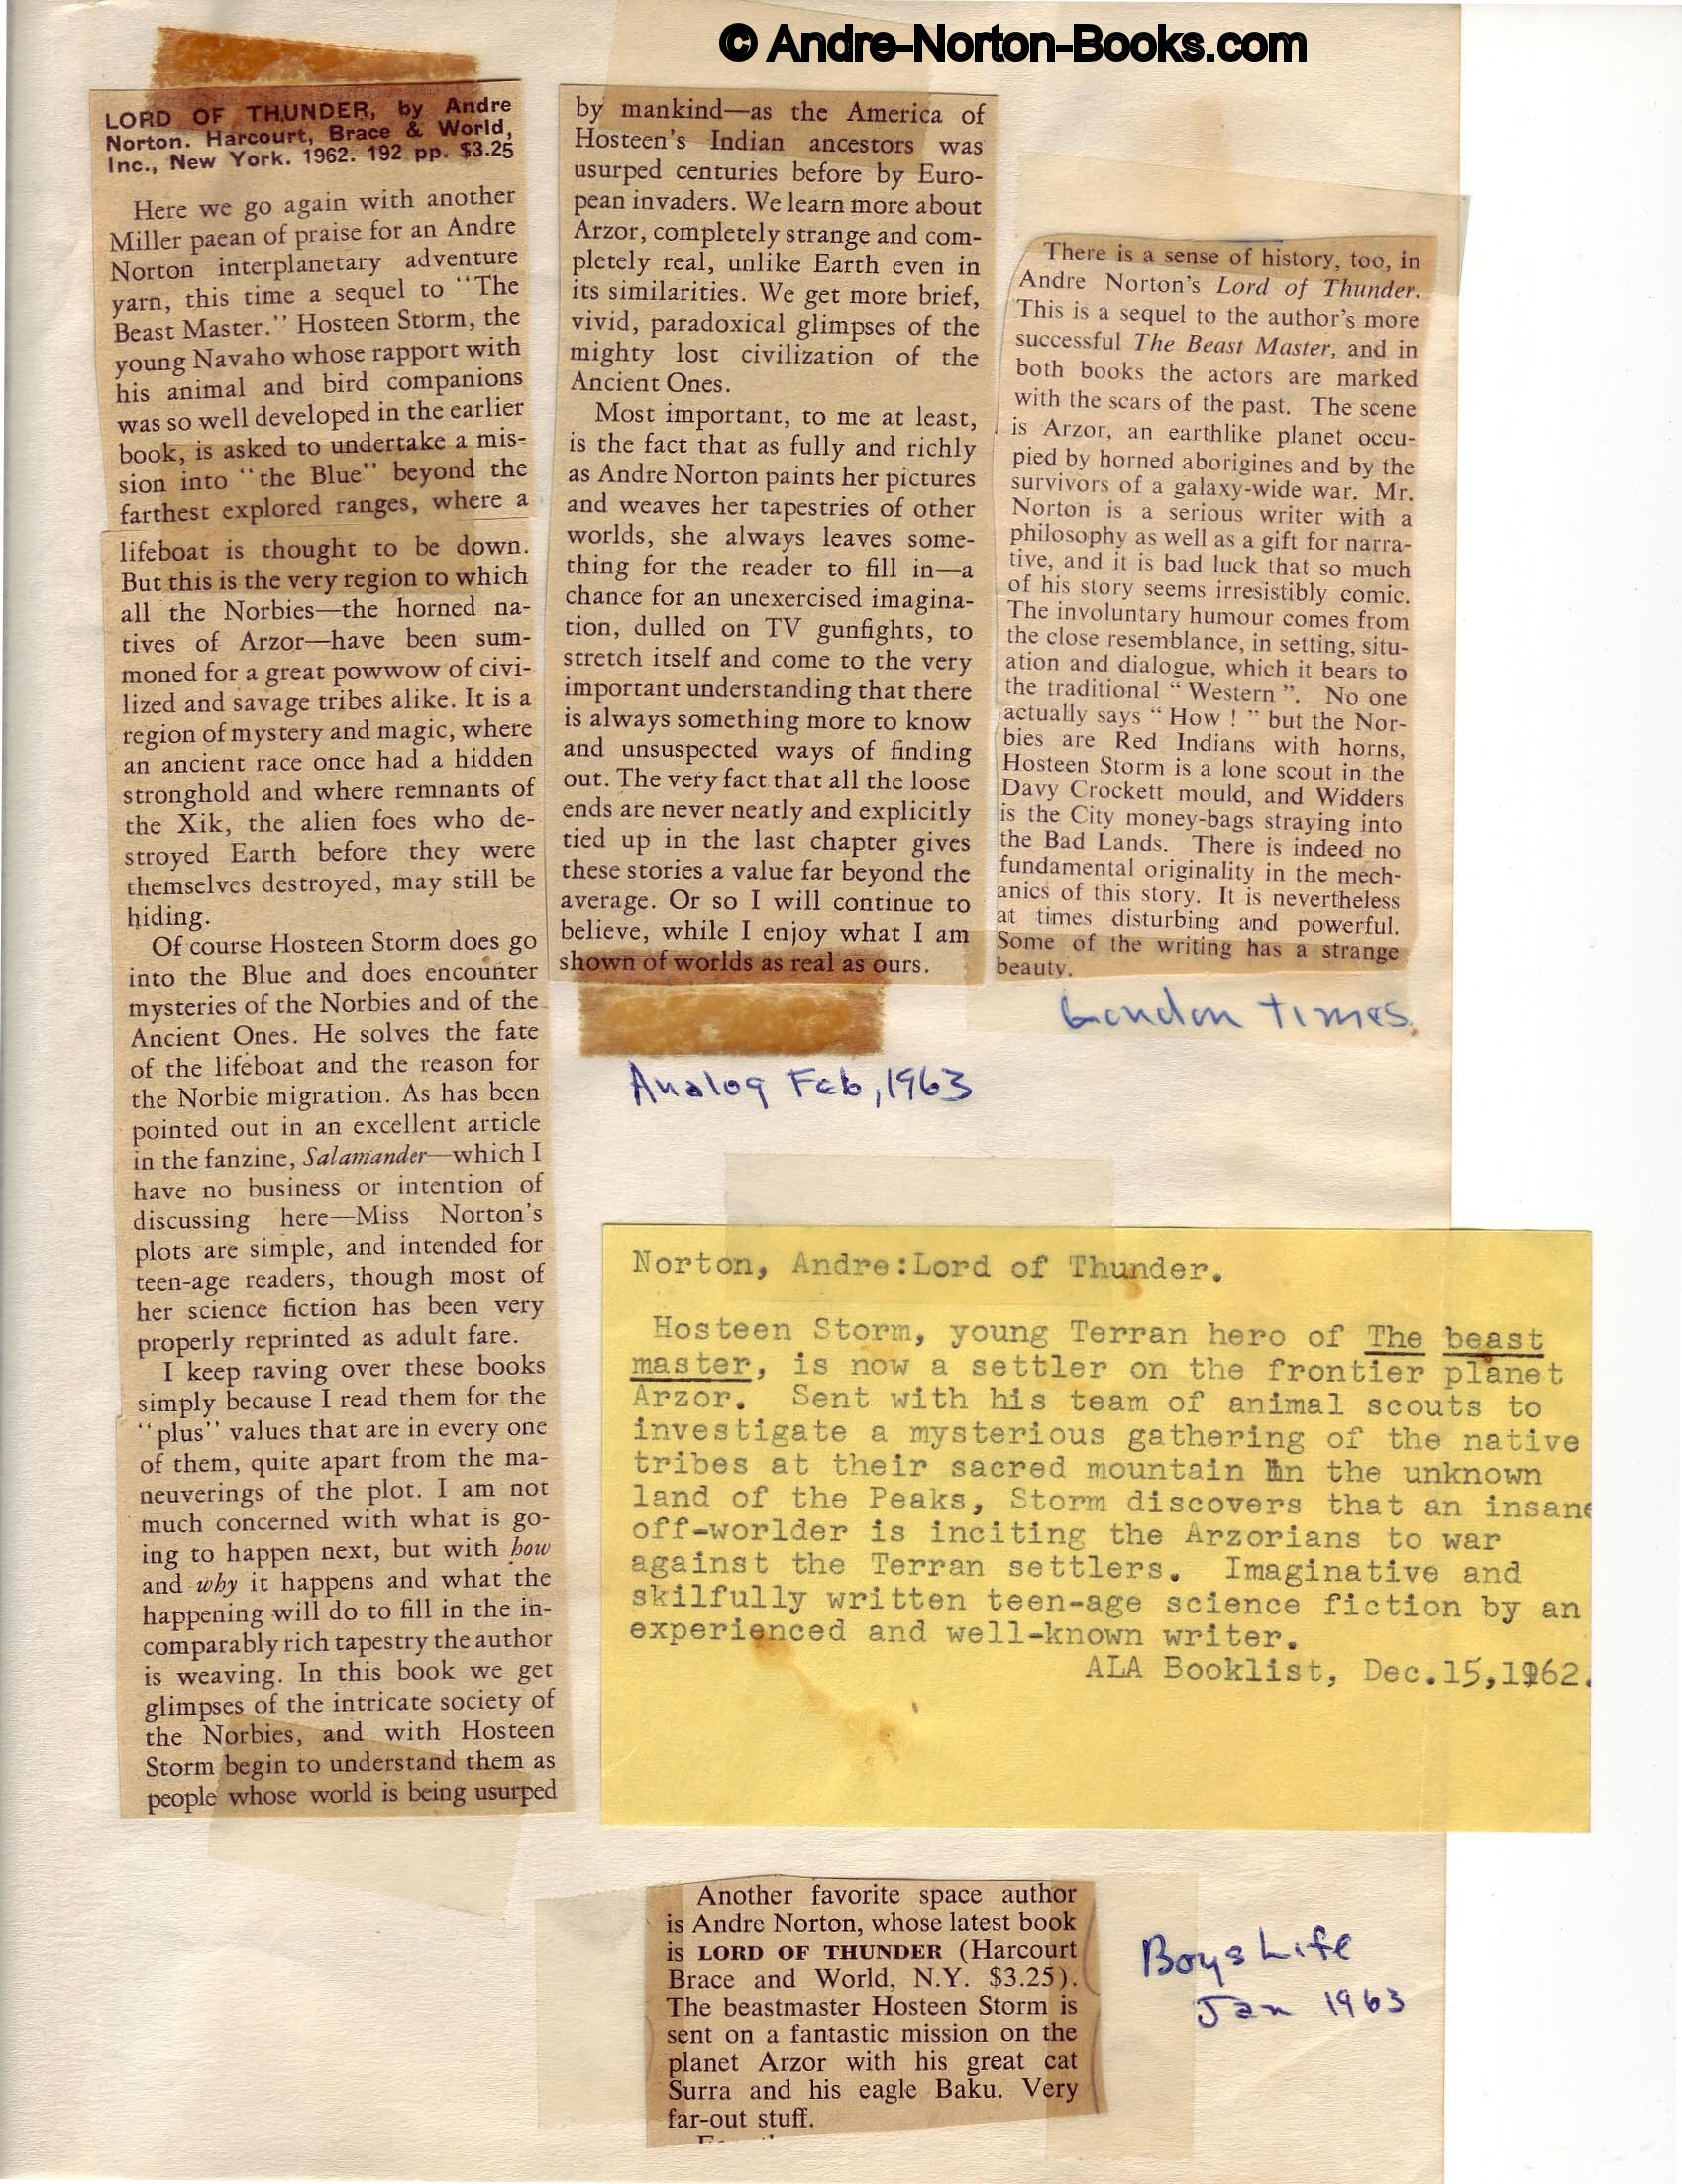 © Andre-Norton-Books.com
LORD OF THUNDER, by Andre
Norton. Harcourt, Brace & World,
Inc., New York. 1962. 192 pp. $3.25
Here we go again with another
Miller paean of praise for an Andre
Norton interplanetary adventure
yarn, this time a sequel to "The
Beast Master." Hosteen Storm, the
young Navaho whose rapport with
his animal and bird companions
was so well developed in the earlier
book, is asked to undertake a mis-
sion into "the Blue" beyond the
farthest explored ranges, where a
lifeboat is thought to be down.
But this is the very region to which
all the Norbies—the horned na-
tives of Arzor—have been sum-
moned for a great powwow of civi-
lized and savage tribes alike. It is a
region of mystery and magic, where
an ancient race once had a hidden
stronghold and where remnants of
the Xik, the alien foes who de-
stroyed Earth before they were
themselves destroyed, may still be
hiding.
Of course Hosteen Storm does go
into the Blue and does encounter
mysteries of the Norbies and of the
Ancient Ones. He solves the fate
of the lifeboat and the reason for
the Norbie migration. As has been
pointed out in an excellent article
in the fanzine, Salamander—which I
have no business or intention of
discussing here—Miss Norton's
plots are simple, and intended for
teen-age readers, though most of
her science fiction has been very
properly reprinted as adult fare.
I keep raving over these books
simply because I read them for the
"plus" values that are in every one
of them, quite apart from the ma-
neuverings of the plot. I am not
much concerned with what is go-
ing to happen next, but with how
and why it happens and what the
happening will do to fill in the in-
comparably rich tapestry the author
is weaving. In this book we get
glimpses of the intricate society of
the Norbies, and with Hosteen
Storm begin to understand them as
people whose world is being usurped
by mankind—as the America of
Hosteen's Indian ancestors was
usurped centuries before by Euro-
pean invaders. We learn more about
Arzor, completely strange and com-
pletely real, unlike Earth even in
its similarities. We get more brief,
vivid, paradoxical glimpses of the
mighty lost civilization of the
Ancient Ones.
Most important, to me at least,
is the fact that as fully and richly
as Andre Norton paints her pictures
and weaves her tapestries of other
worlds, she always leaves some-
thing for the reader to fill in—a
chance for an unexercised imagina-
tion, dulled on TV gunfights, to
stretch itself and come to the very
important understanding that there
is always something more to know
and unsuspected ways of finding
out. The very fact that all the loose
ends are never neatly and explicitly
tied up in the last chapter gives
these stories a value far beyond the
average. Or so I will continue to
believe, while I enjoy what I am
shown of worlds as real as ours.
Analog Feb, 1963
There is a sense of history, too, in
Andre Norton's Lord of Thunder.
This is a sequel to the author's more
successful The Beast Master, and in
both books the actors are marked
with the scars of the past. The scene
is Arzor, an earthlike planet occu-
pied by horned aborigines and by the
survivors of a galaxy-wide war. Mr.
Norton is a serious writer with a
philosophy as well as a gift for narra-
tive, and it is bad luck that so much
of his story seems irresistibly comic.
The involuntary humour comes from
the close resemblance, in setting, situ-
ation and dialogue, which it bears to
the traditional " Western ". No one
actually says " How ! " but the Nor-
bies are Red Indians with horns,
Hosteen Storm is a lone scout in the
Davy Crockett mould, and Widders
is the City money-bags straying into
the Bad Lands. There is indeed no
fundamental originality in the mech-
anics of this story. It is nevertheless
at times disturbing and powerful.
Some of the writing has a strange
beauty.
London Times.
Norton, Andre:Lord of Thunder.
Hosteen Storm, young Terran hero of The beast
master, is now a settler on the frontier planet
Arzor. Sent with his team of animal scouts to
investigate a mysterious gathering of the native
tribes at their sacred mountain in the unknown
land of the Peaks, Storm discovers that an insane
off-worlder is inciting the Arzorians to war
against the Terran settlers. Imaginative and
skilfully written teen-age science fiction by an
experienced and well-known writer.
ALA Booklist, Dec.15,1962.
Another favorite space author
is Andre Norton, whose latest book
is LORD OF THUNDER (Harcourt
Brace and World, N.Y. $3.25).
The beastmaster Hosteen Storm is
sent on a fantastic mission on the
planet Arzor with his great cat
Surra and his eagle Baku. Very
far-out stuff.
Boys Life
Jan 1963